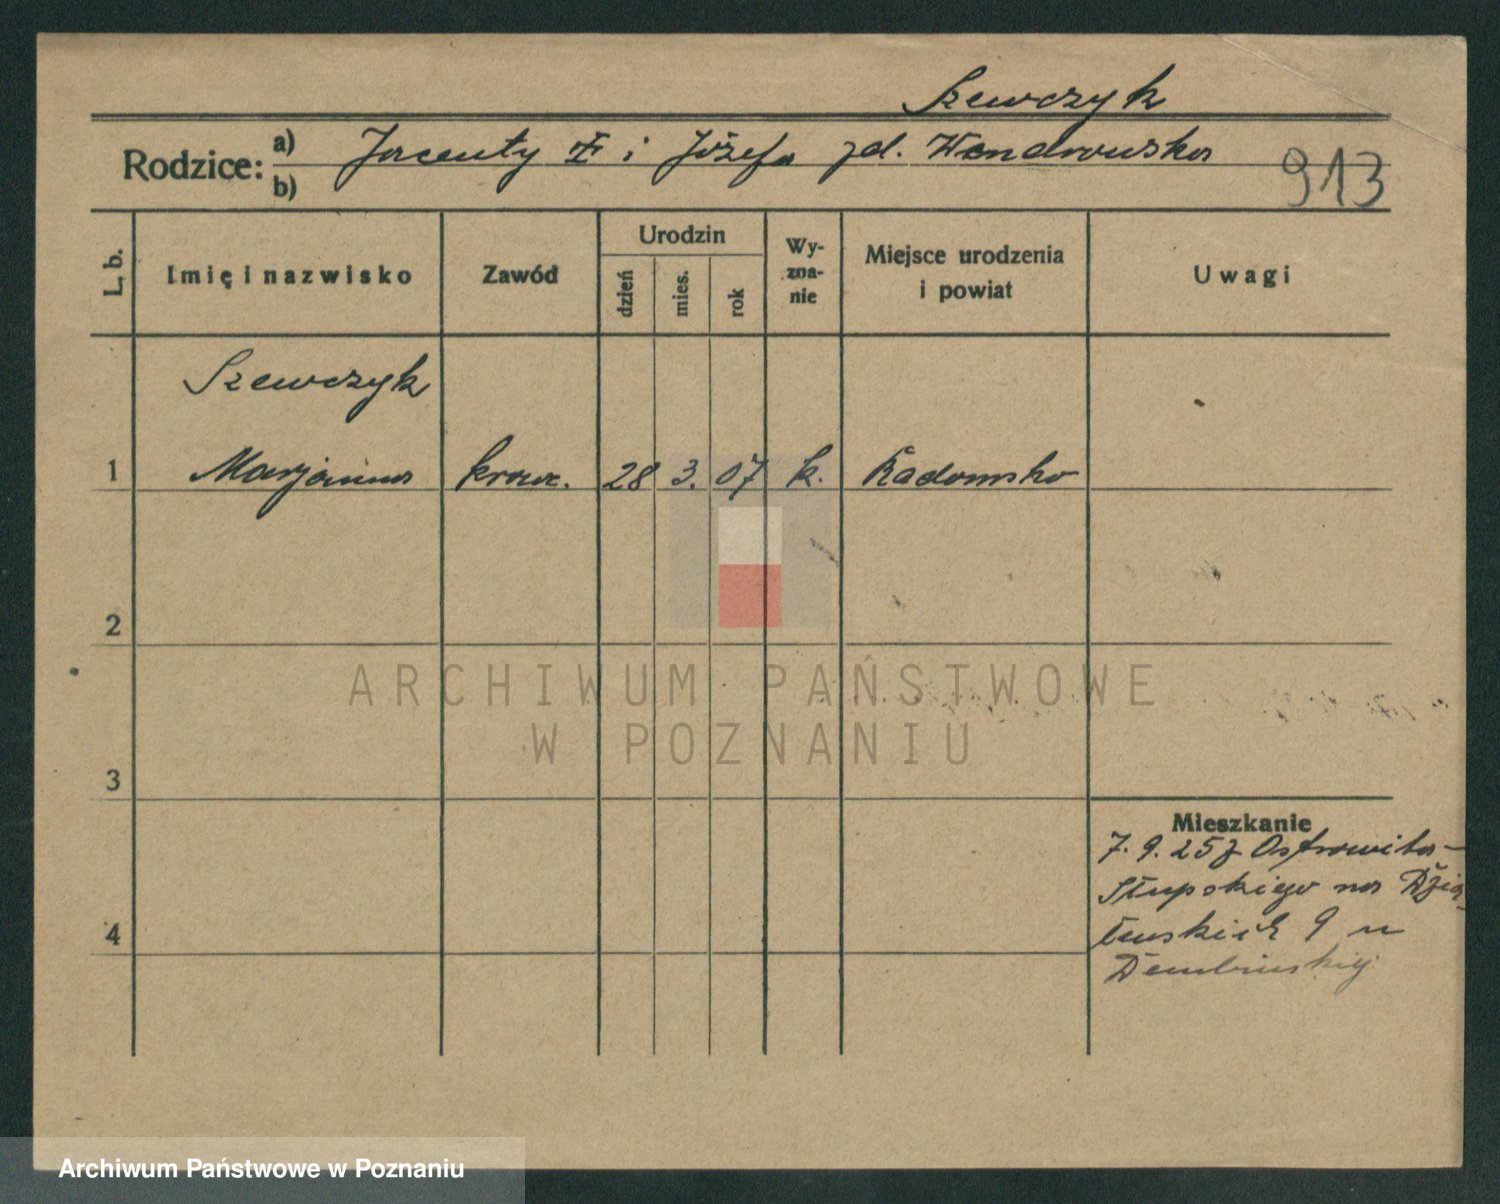 Szewczyk
Rodzice: a) Jacenty i Józefa zd. Wendrowska
b)
913
L. b. Imię i nazwisko Zawód Urodzin dzień mies. rok Wy-zna-nie Miejsce urodzenia i powiat Uwagi
Szewczyk
1 Marjanna kraw. 28 3. 07 k. Radomsko
2
ARCHIWUM PAŃSTWOWE
W POZNANIU
3
Mieszkanie
7. 9. 25 z Ostrowita-
Słupskiego na
4
9 u
Dembińskiej
Archiwum Państwowe w Poznaniu